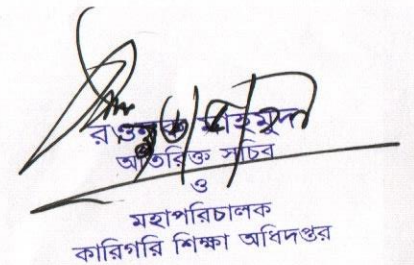 রওনক মাহমুদ
অতিরিক্ত সচিব
ও
মহাপরিচালক
কারিগরি শিক্ষা অধিদপ্তর